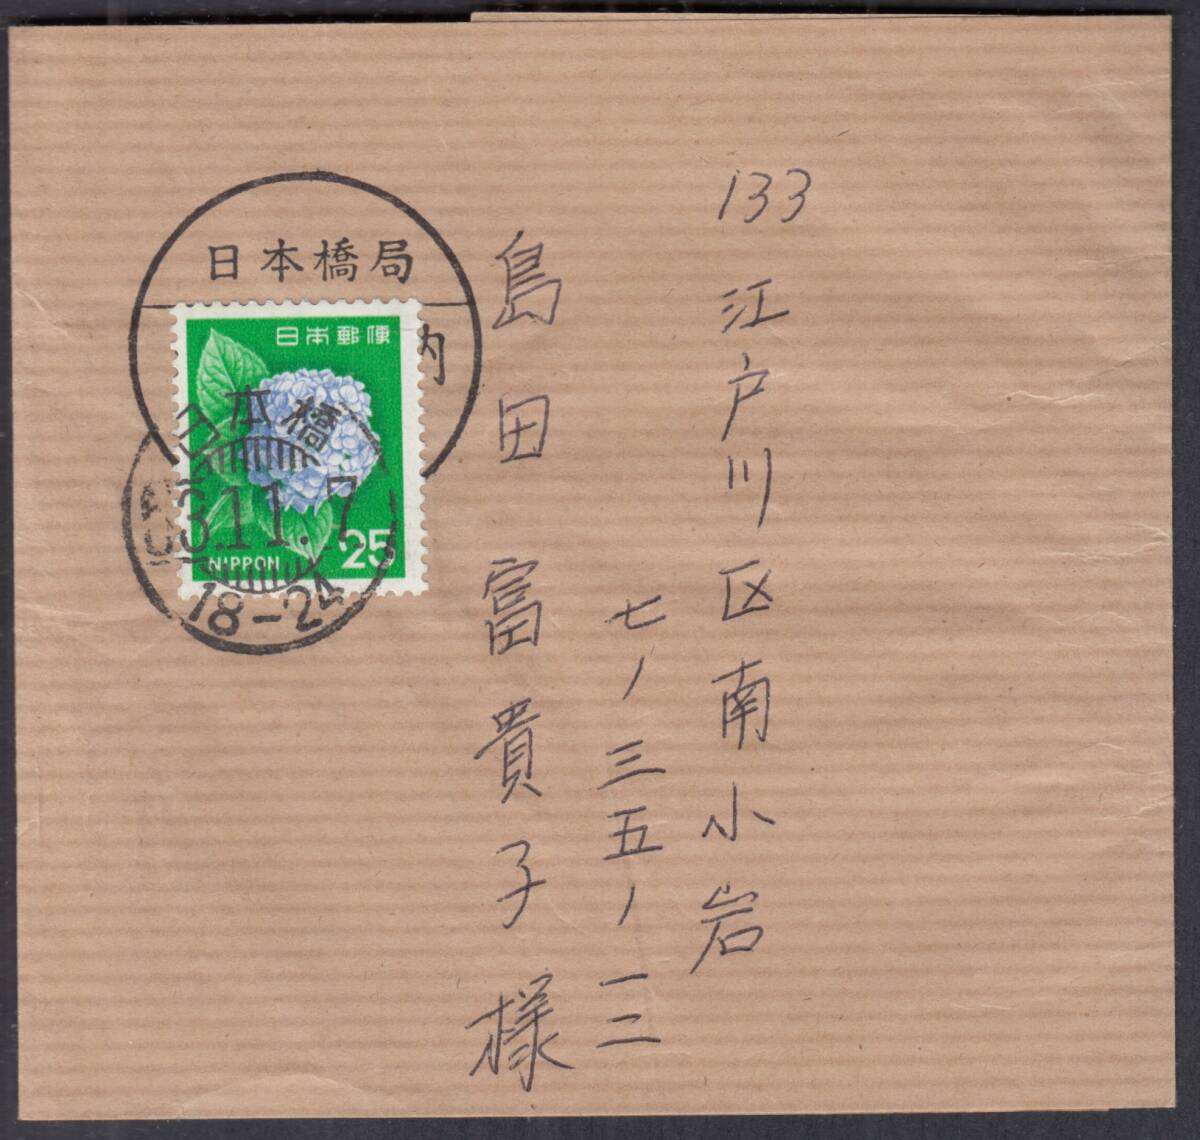 133
江戸川区南小岩
七ノ三五ノ一二
島田富貴子様
日本橋局
内
日本郵便
日本橋
3.11.7
NIPPON
25
18-24